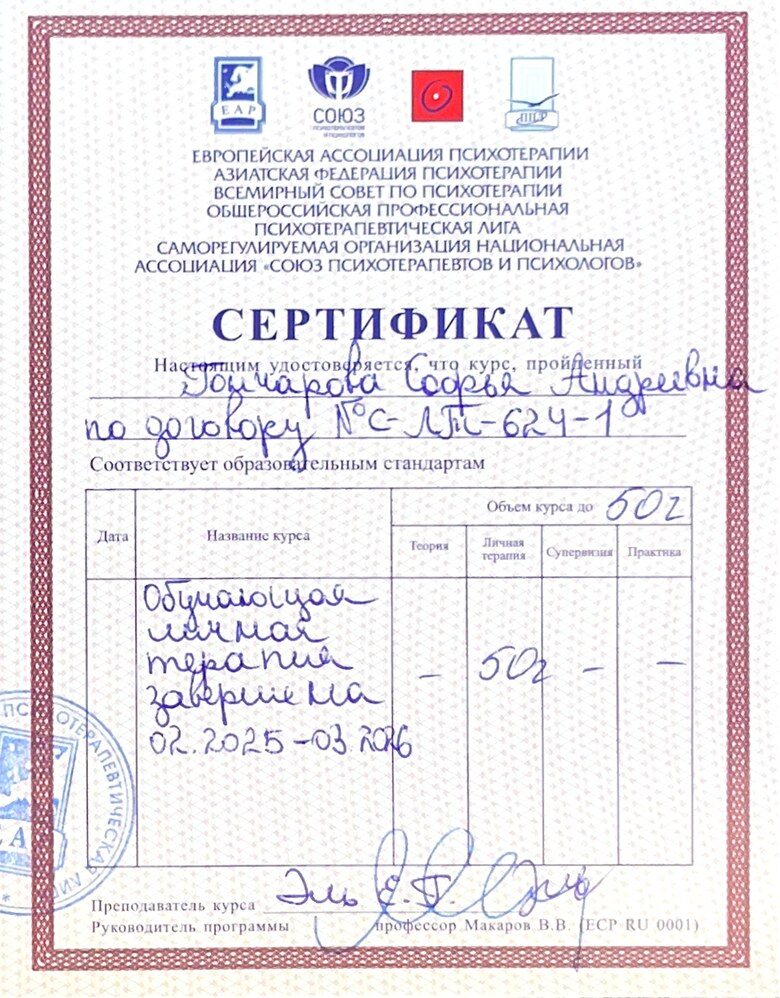 ЕАР
СОЮЗ
ПСИХОТЕРАПЕВТОВ
И ПСИХОЛОГОВ
ППЛ
ЕВРОПЕЙСКАЯ АССОЦИАЦИЯ ПСИХОТЕРАПИИ
АЗИАТСКАЯ ФЕДЕРАЦИЯ ПСИХОТЕРАПИИ
ВСЕМИРНЫЙ СОВЕТ ПО ПСИХОТЕРАПИИ
ОБЩЕРОССИЙСКАЯ ПРОФЕССИОНАЛЬНАЯ
ПСИХОТЕРАПЕВТИЧЕСКАЯ ЛИГА
САМОРЕГУЛИРУЕМАЯ ОРГАНИЗАЦИЯ НАЦИОНАЛЬНАЯ
АССОЦИАЦИЯ «СОЮЗ ПСИХОТЕРАПЕВТОВ И ПСИХОЛОГОВ»
СЕРТИФИКАТ
Настоящим удостоверяется, что курс, пройденный
Гончарова Софья Андреевна
по договору №С-ЛТ-624-1
Соответствует образовательным стандартам
Объем курса до 50ч
Дата Название курса Теория Личная терапия Супервизия Практика
Обучающая
личная
терапия
завершена
02.2025-03 2026
– 50ч – –
ПСИХОТЕРАПЕВТИЧЕСКАЯ
Преподаватель курса Эль Е.П.
Руководитель программы профессор Макаров В.В. (ECP RU 0001)